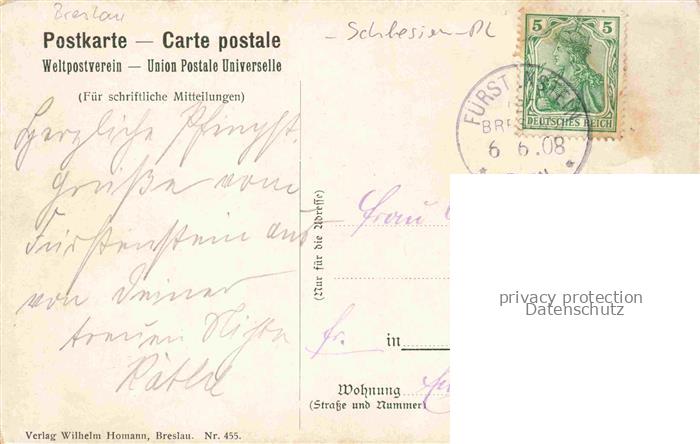 Breslau
Postkarte — Carte postale
Weltpostverein — Union Postale Universelle
(Für schriftliche Mitteilungen)
Schlesien - PL
5 5
DEUTSCHES REICH
FÜRSTENSTEIN
6 6.08
Herzliche Pfingst
Grüße vom
Fürstenstein aus
von Deiner
treuen Nichte
Käthe
(Nur für die Adresse)
Frau
Fr. in
Wohnung
(Straße und Nummer)
privacy protection
Datenschutz
Verlag Wilhelm Homann, Breslau. Nr. 455.